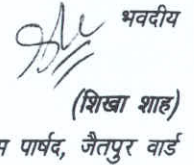 भवदीय
(शिखा शाह)
पार्षद, जैतपुर वार्ड